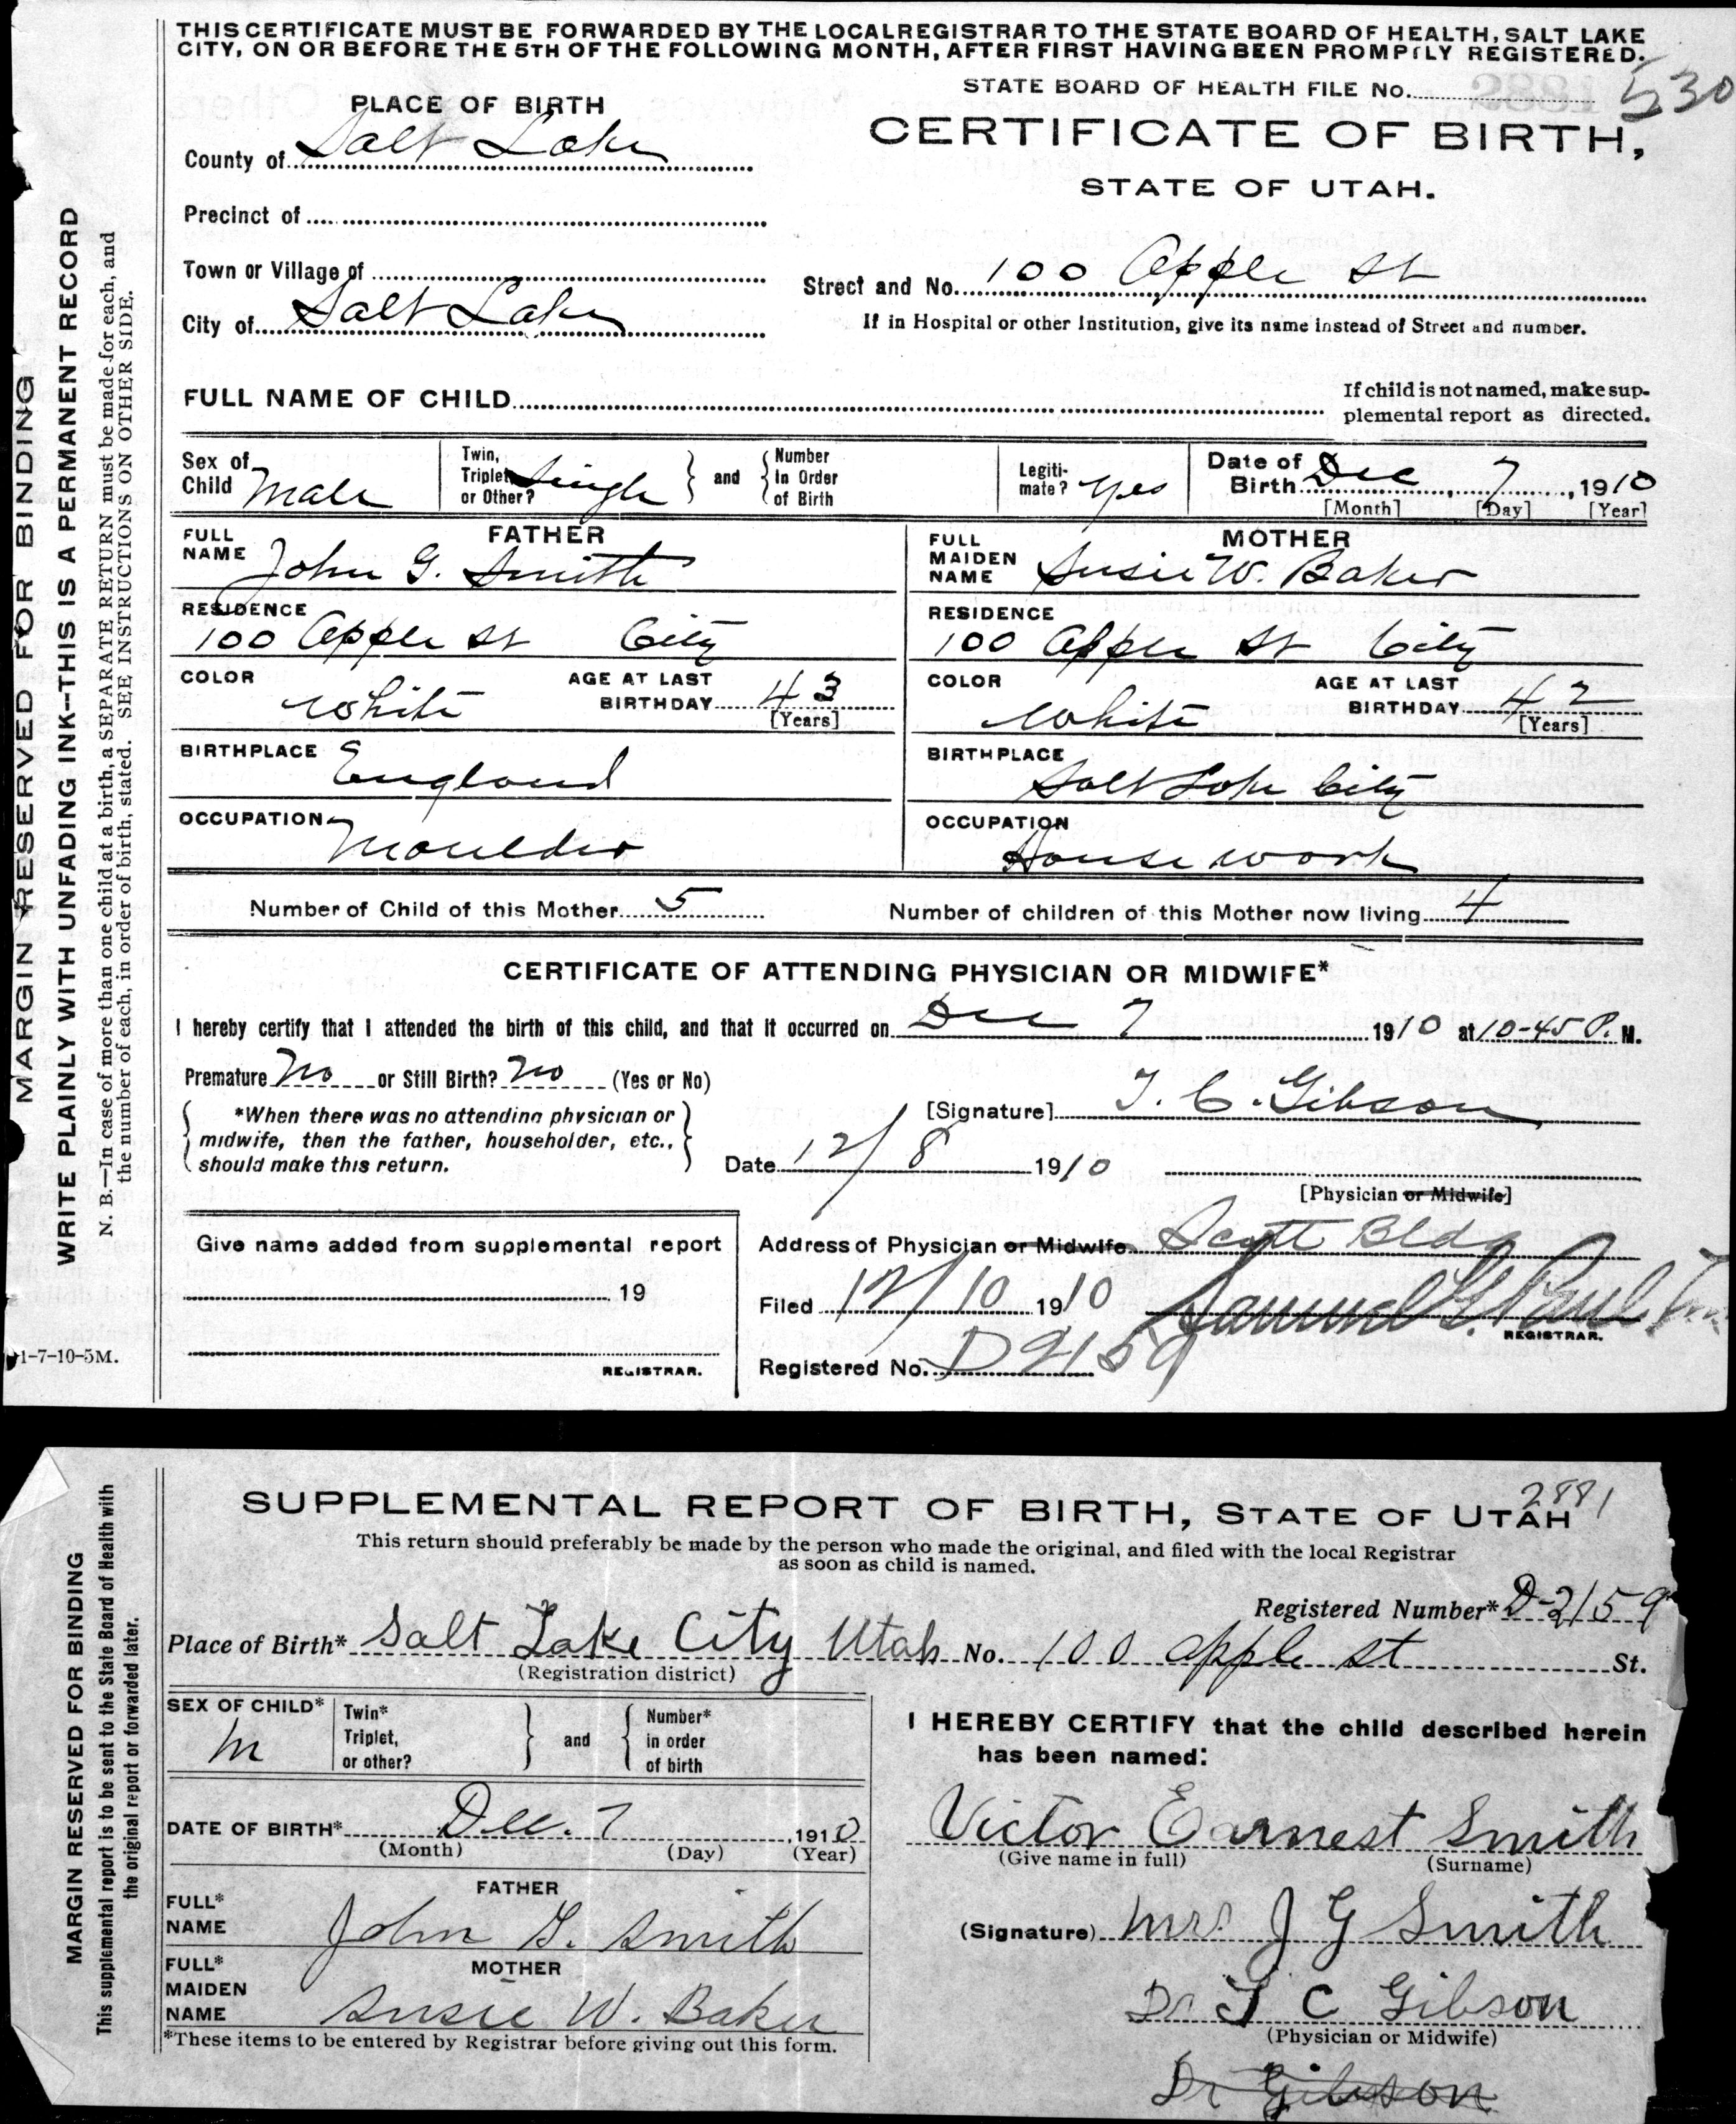 THIS CERTIFICATE MUST BE FORWARDED BY THE LOCAL REGISTRAR TO THE STATE BOARD OF HEALTH, SALT LAKE
CITY, ON OR BEFORE THE 5TH OF THE FOLLOWING MONTH, AFTER FIRST HAVING BEEN PROMPTLY REGISTERED.
STATE BOARD OF HEALTH FILE No. 530
PLACE OF BIRTH
CERTIFICATE OF BIRTH,
STATE OF UTAH.
County of Salt Lake
Precinct of
Town or Village of
Street and No. 100 Apple St
City of Salt Lake
If in Hospital or other Institution, give its name instead of Street and number.
FULL NAME OF CHILD
If child is not named, make sup-
plemental report as directed.
Sex of Child Male
Twin, Triplet or Other? Single and Number In Order of Birth
Legiti-mate? Yes
Date of Birth Dec 7, 1910
[Month] [Day] [Year]
FATHER
FULL NAME John G. Smith
RESIDENCE
100 Apple St City
COLOR White AGE AT LAST BIRTHDAY 43 [Years]
BIRTHPLACE England
OCCUPATION Moulder
MOTHER
FULL MAIDEN NAME Susie W. Baker
RESIDENCE
100 Apple St City
COLOR White AGE AT LAST BIRTHDAY 42 [Years]
BIRTHPLACE Salt Lake City
OCCUPATION House work
Number of Child of this Mother 5 Number of children of this Mother now living 4
CERTIFICATE OF ATTENDING PHYSICIAN OR MIDWIFE*
I hereby certify that I attended the birth of this child, and that it occurred on Dec 7 1910 at 10-45 P. M.
Premature No or Still Birth? No (Yes or No)
*When there was no attending physician or
midwife, then the father, householder, etc.,
should make this return.
[Signature] T. C. Gibson
Date 12/8 1910
[Physician or Midwife]
Give name added from supplemental report
19
REGISTRAR.
Address of Physician or Midwife Scott Bldg
Filed 12/10 1910 Samuel G. Paul
REGISTRAR.
Registered No. D2159
1-7-10-5M.
MARGIN RESERVED FOR BINDING
WRITE PLAINLY WITH UNFADING INK--THIS IS A PERMANENT RECORD
N. B.—In case of more than one child at a birth, a SEPARATE RETURN must be made for each, and
the number of each, in order of birth, stated. SEE INSTRUCTIONS ON OTHER SIDE.
2881
SUPPLEMENTAL REPORT OF BIRTH, STATE OF UTAH
This return should preferably be made by the person who made the original, and filed with the local Registrar
as soon as child is named.
Registered Number* D-2159
Place of Birth* Salt Lake City Utah No. 100 apple st St.
(Registration district)
SEX OF CHILD* M
Twin* Triplet, or other? and Number* in order of birth
DATE OF BIRTH* Dec. 7, 1910
(Month) (Day) (Year)
FATHER
FULL* NAME John G. Smith
MOTHER
FULL* MAIDEN NAME Susie W. Baker
*These items to be entered by Registrar before giving out this form.
I HEREBY CERTIFY that the child described herein
has been named:
Victor Earnest Smith
(Give name in full) (Surname)
(Signature) Mrs. J G Smith
Dr T C Gibson
(Physician or Midwife)
Dr Gibson
MARGIN RESERVED FOR BINDING
This supplemental report is to be sent to the State Board of Health with
the original report or forwarded later.